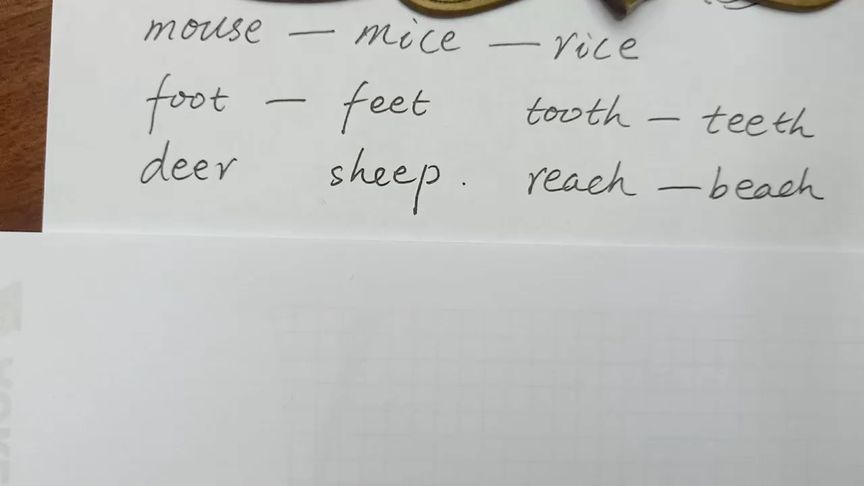 mouse — mice — rice
foot — feet tooth — teeth
deer sheep. reach — beach